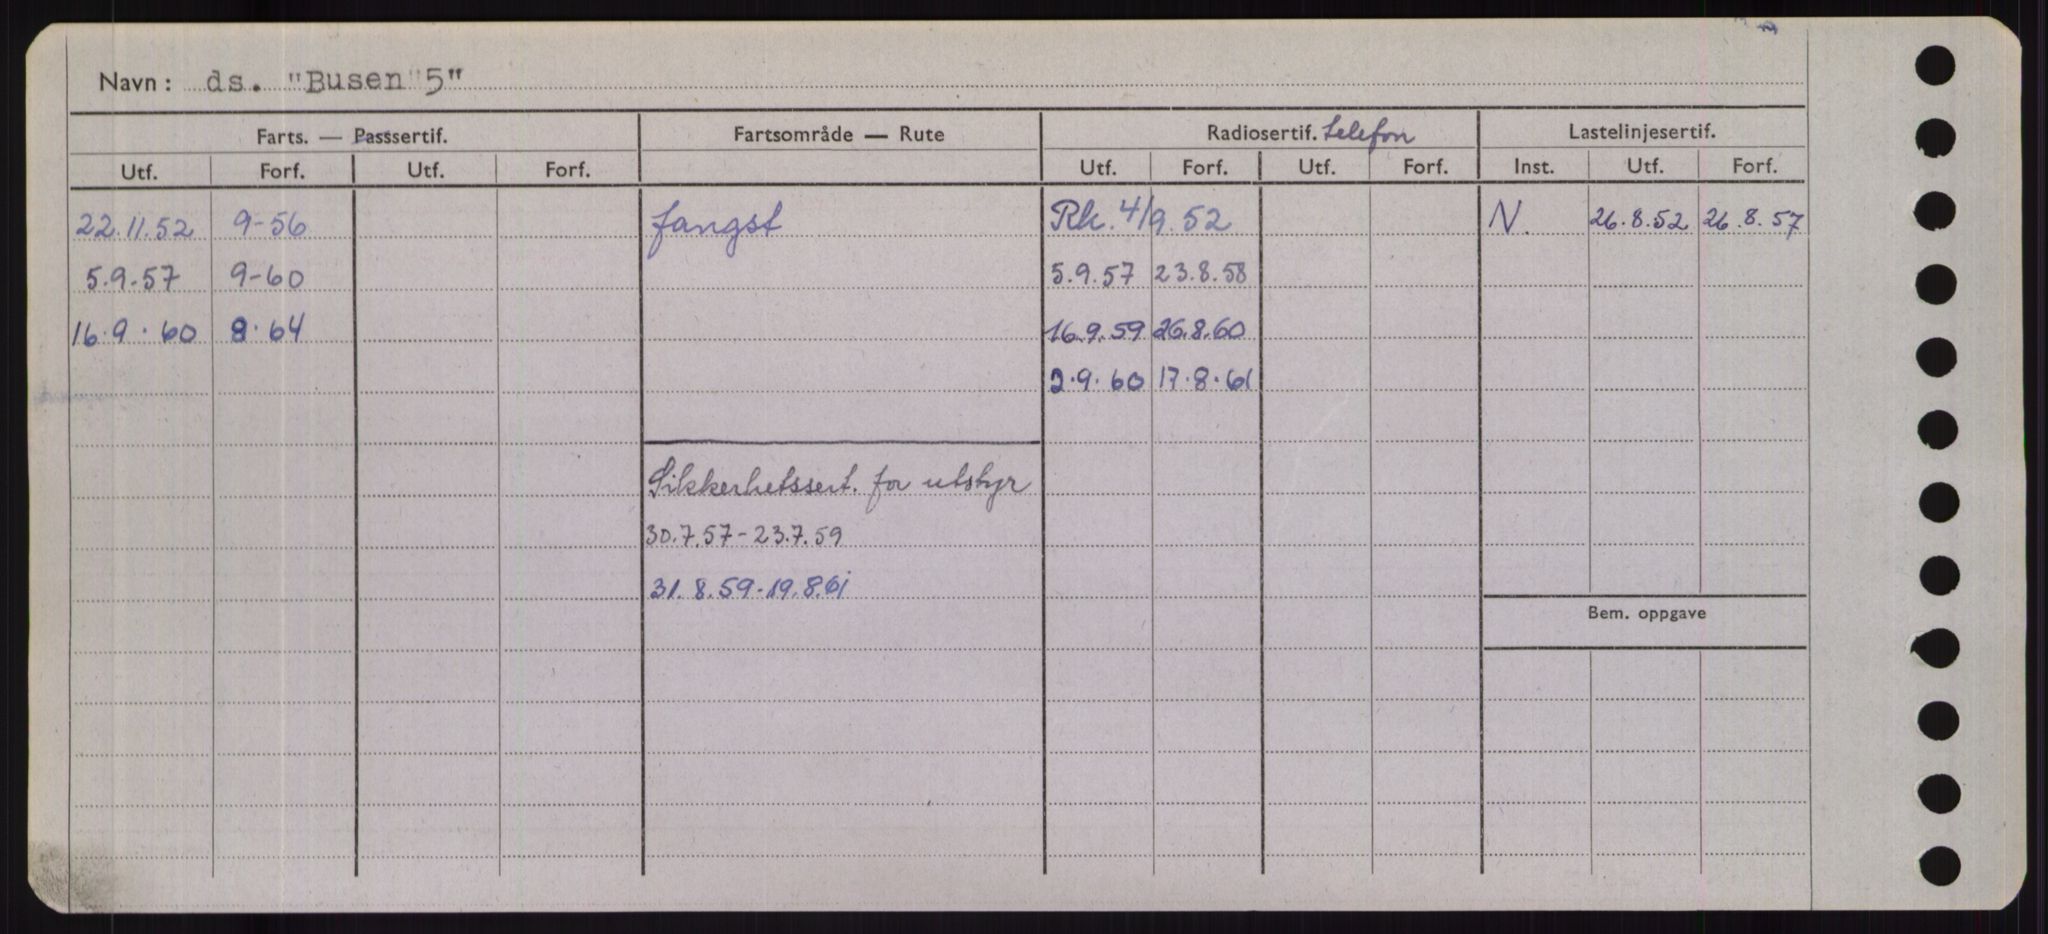 Navn: ds. "Busen "5"
Farts. — Passsertif. Fartsområde — Rute Radiosertif. telefon Lastelinjesertif.
Utf. Forf. Utf. Forf. Utf. Forf. Utf. Forf. Inst. Utf. Forf.
22.11.52 9-56 fangst Rk. 4/9.52 N. 26.8.52 26.8.57
5.9.57 9-60 5.9.57 23.8.58
16.9.60 8.64 16.9.59 26.8.60
2.9.60 17.8.61
Sikkerhetssert. for utstyr
30.7.57-23.7.59
31.8.59-19.8.61
Bem. oppgave